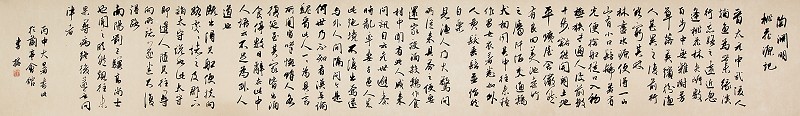 陶淵明
桃花源記
晉太元中武陵人
捕魚為業緣溪
行忘路之遠近忽
逢桃花林夾岸數
百步中無雜樹芳
草鮮美落英繽紛漁
人甚異之復前行
欲窮其林
林盡水源便得一山
山有小口髣髴若有
光便捨船從口入初
極狹纔通人復行數
十步豁然開朗土地
平曠屋舍儼然
有良田美池桑竹
之屬阡陌交通雞
犬相聞其中往來種
作男女衣著悉如外
人黃髮垂髫並怡然
自樂
見漁人乃大驚問
所從來具答之便要
還家設酒殺雞作食
村中聞有此人咸來
問訊自云先世避秦
時亂率妻子邑人來
此絕境不復出焉遂
與外人間隔問今是
何世乃不知有漢無論
魏晉此人一一為具言
所聞皆嘆惋餘人各
復延至其家皆出酒
食停數日辭去此中
人語云不足為外人
道也
既出得其船便扶向
路處處誌之及郡下
詣太守說如此太守
即遣人隨其往尋向
所誌遂迷不復
得路
南陽劉子驥高尚士
也聞之欣然規往未
果尋病終後遂無問
津者
丙申大暑